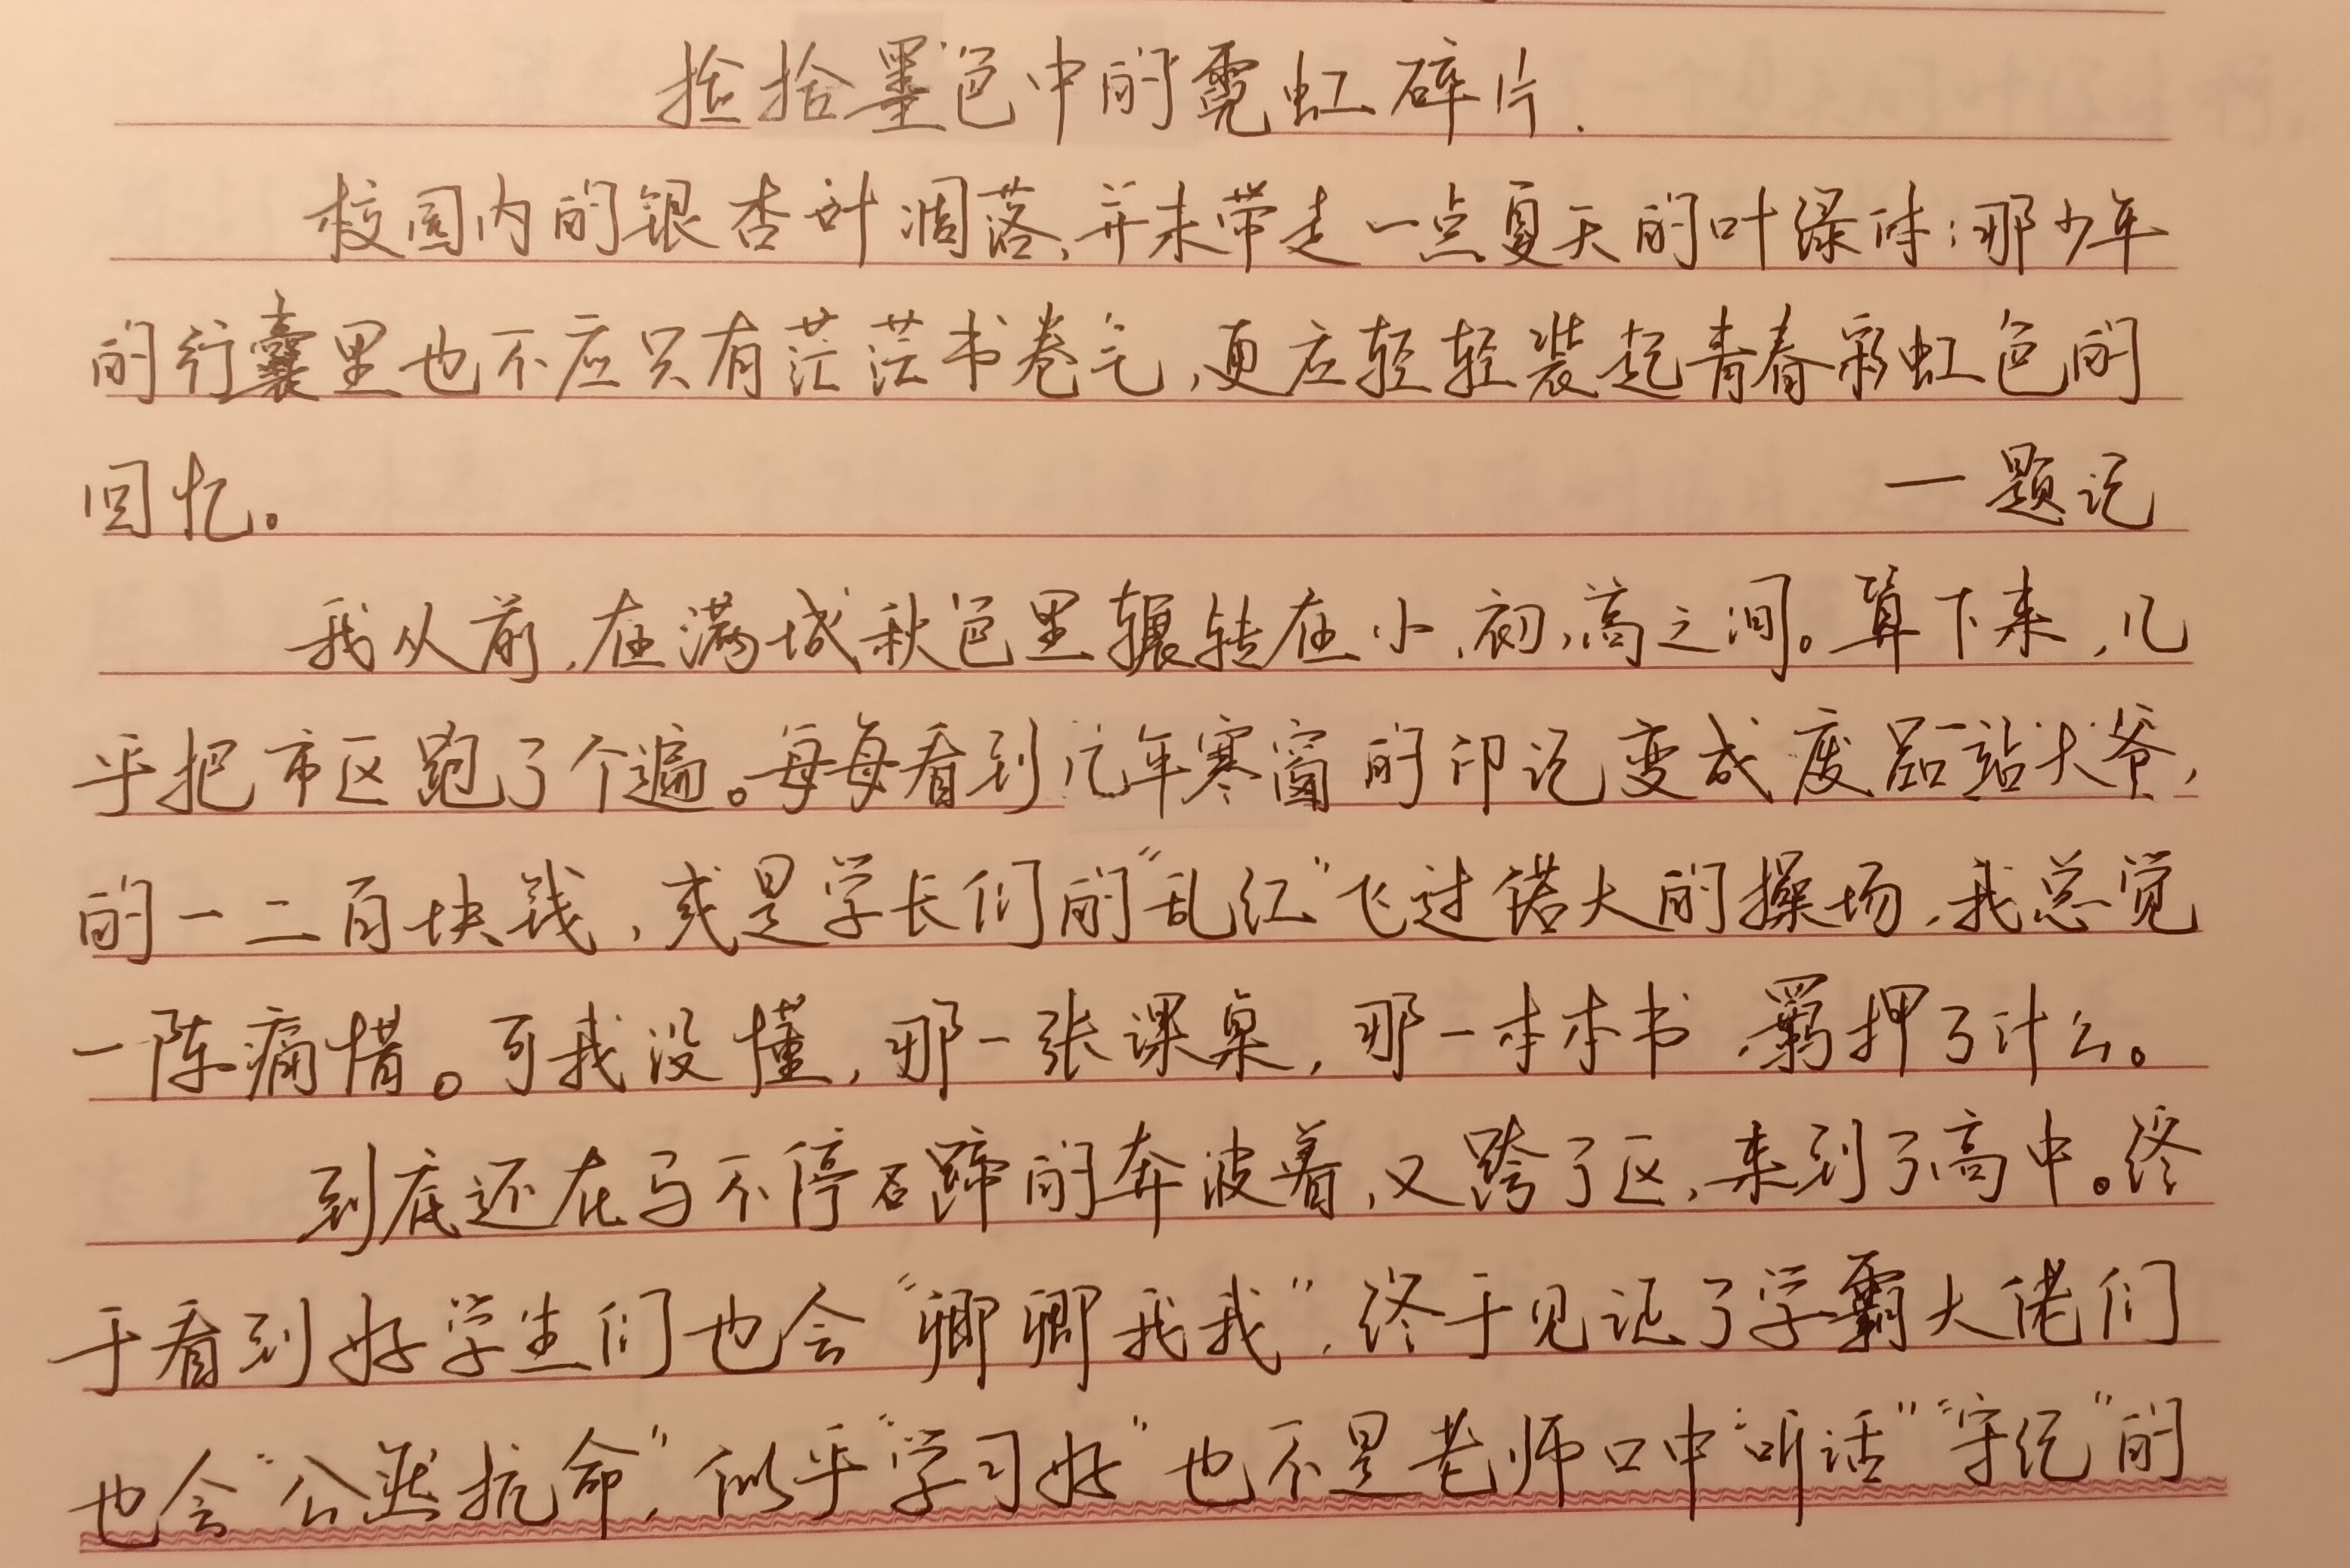 捡拾墨色中的霓虹碎片.
校园内的银杏叶凋落,并未带走一点夏天的叶绿味;那少年
的行囊里也不应只有茫茫书卷气,更应轻轻装起青春彩虹色的
回忆。 —题记
我从前,在满城秋色里辗转在小,初,高之间。算下来,几
乎把市区跑了个遍。每每看到几年寒窗的印记变成废品站大爷,
的一二百块钱,或是学长们的“乱红”飞过偌大的操场,我总觉
一阵痛惜。可我没懂,那一张课桌,那一本本书,羁押了什么。
到底还在马不停蹄的奔波着,又跨了区,来到了高中。终
于看到好学生们也会“卿卿我我”,终于见证了学霸大佬们
也会“公然抗命”,似乎“学习好”也不是老师口中“听话”“守纪”的